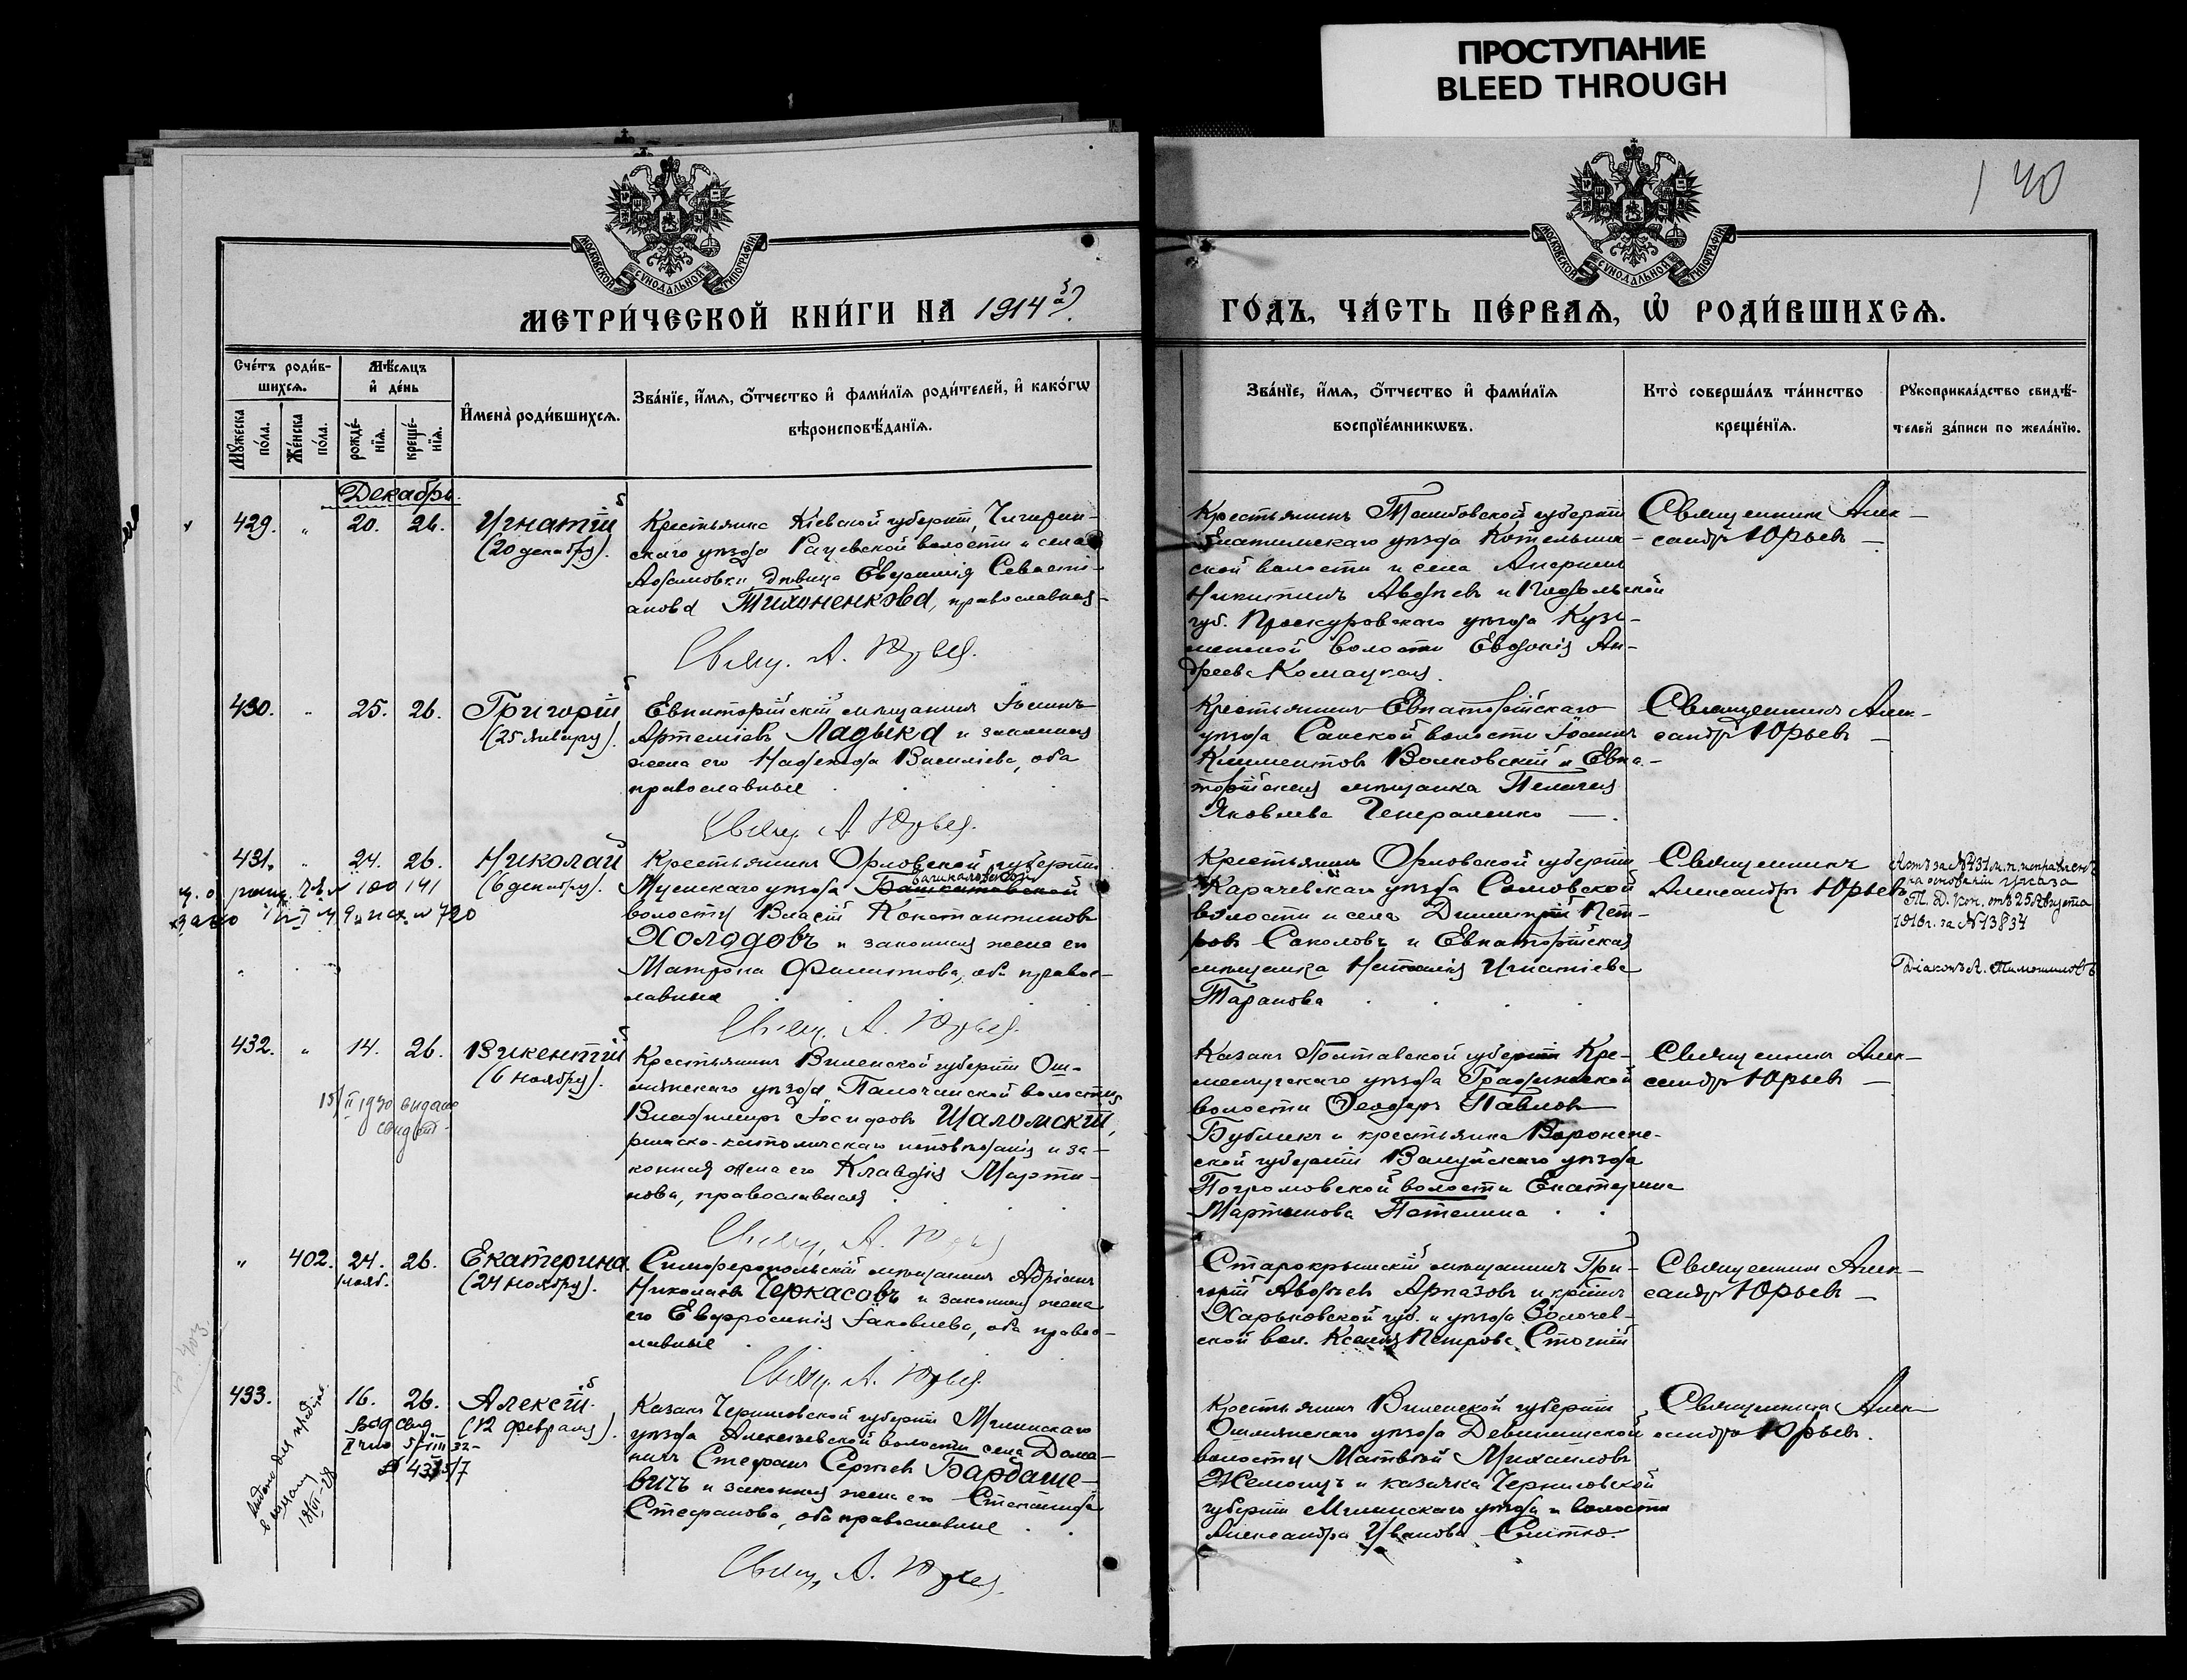 ПРОСТУПАНИЕ
BLEED THROUGH
140
МОСКОВСКОЙ СѴНОДАЛЬНОЙ ТИПОГРАФІИ
МОСКОВСКОЙ СѴНОДАЛЬНОЙ ТИПОГРАФІИ
МЕТРИ́ЧЕСКОЙ КНИ́ГИ НА 1914й
ГО́ДЪ, ЧА́СТЬ ПЕ́РВАѦ, Ѡ҆ РОДИ́ВШИХСѦ.
Сче́тъ роди́в-
шихсѧ.
Мѣ́сѧцъ
и҆ де́нь
Мꙋ́жеска по́ла.
Же́нска по́ла.
рожде́-нїѧ.
креще́-нїѧ.
И҆мена̀ роди́вшихсѧ.
Зва́нїе, и҆́мѧ, ѻ҆́тчество и҆ фами́лїѧ роди́телей, и҆ како́гѡ
вѣроисповѣ́данїѧ.
Зва́нїе, и҆́мѧ, ѻ҆́тчество и҆ фами́лїѧ
воспрїе́мникѡвъ.
Кто̀ соверша́лъ та́инство
креще́нїѧ.
Рꙋкоприкла́дство свидѣ́-
телей за́писи по жела́нїю.
Декабрь.
429. " 20. 26. Игнатій
(20 декабря).
Крестьянка Кіевской губерніи, Чигирин-
скаго уѣзда Рацевской волости и села
дѣвица Евфимія Севасти-
анова Тихоненкова, православная
Свящ. А. Юрьев.
Крестьянинъ Тамбовской губерніи
Елатомскаго уѣзда Котельин-
ской волости и села
Никитинъ Авдѣевъ и Подольской
губ. Проскуровскаго уѣзда Кузь-
минской волости Евдокія Ан-
дреева
Священникъ Алек-
сандръ Юрьевъ
430. " 25. 26. Григорій
(25 января).
Евпаторійскій мѣщанинъ Іоаннъ
Артеміевъ Ладыка и законная
жена его Надежда Василіева, оба
православные
Свящ. А. Юрьев.
Крестьянинъ Евпаторійскаго
уѣзда Сакской волости Іоаннъ
Климентовъ Волковскій и Евпа-
торійская мѣщанка Пелагія
Яковлева
Священникъ Алек-
сандръ Юрьевъ
431. " 24. 26. Николай
(6 декабря).
Крестьянинъ Орловской губерніи
уѣзда
волости Власій Константиновъ
Холодовъ и законная жена его
Матрона Филиппова, оба право-
славные
Свящ. А. Юрьев.
Крестьянинъ Орловской губерніи
Карачевскаго уѣзда Соловской
волости и села Димитрій Пет-
ровъ Соколовъ и Евпаторійская
мѣщанка Наталія Игнатіева
Таранова
Священникъ
Александръ Юрьевъ
Актъ за №431 м.п. исправленъ
на основаніи указа
Т. Д. Кон. отъ 25 Августа
1916г. за №13834
Діаконъ А.
432. " 14. 26. Викентій
(6 ноября).
15/II 1930 выдано
свидѣт.
Крестьянинъ Виленской губерніи Ош-
мянскаго уѣзда Полочанской волости
Владиміръ Іосифовъ Шаломскій,
римско-католическаго исповѣданія и за-
конная жена его Клавдія Марти-
нова, православная
Свящ. А. Юрьев
Казакъ Полтавской губерніи Кре-
менчугскаго уѣзда
волости Ѳеодоръ Павловъ
Бубликъ и крестьянка Воронеж-
ской губерніи Валуйскаго уѣзда
Погромовской волости Екатерина
Мартинова Потемина
Священникъ Алек-
сандръ Юрьевъ
" 402. 24. 26. Екатерина.
нояб. (24 ноября).
Симферопольскій мѣщанинъ Адріанъ
Николаевъ Черкасовъ и законная жена
его Евфросинія Іаковлева, оба право-
славные
Свящ. А. Юрьев.
Старокрымскій мѣщанинъ Гри-
горій Авдѣевъ Арпазовъ и кр-нка
Харьковской губ. и уѣзда Золочев-
ской вол. Ксенія Петрова Стогній
Священникъ Алек-
сандръ Юрьевъ
433. 16. 26. Алексій.
(12 февраля).
Казакъ Черниговской губерніи Мглинскаго
уѣзда Алексѣевской волости села Дома-
ничъ Стефанъ Сергѣевъ Бардаше-
вичъ и законная жена его Степанида
Стефанова, оба православные
Свящ. А. Юрьев.
Крестьянинъ Виленской губерніи
Ошмянскаго уѣзда Девенишской
волости Матвѣй Михаиловъ
и казачка Черниговской
губерніи Мглинскаго уѣзда и волости
Александра Иванова
Священникъ Алек-
сандръ Юрьевъ.